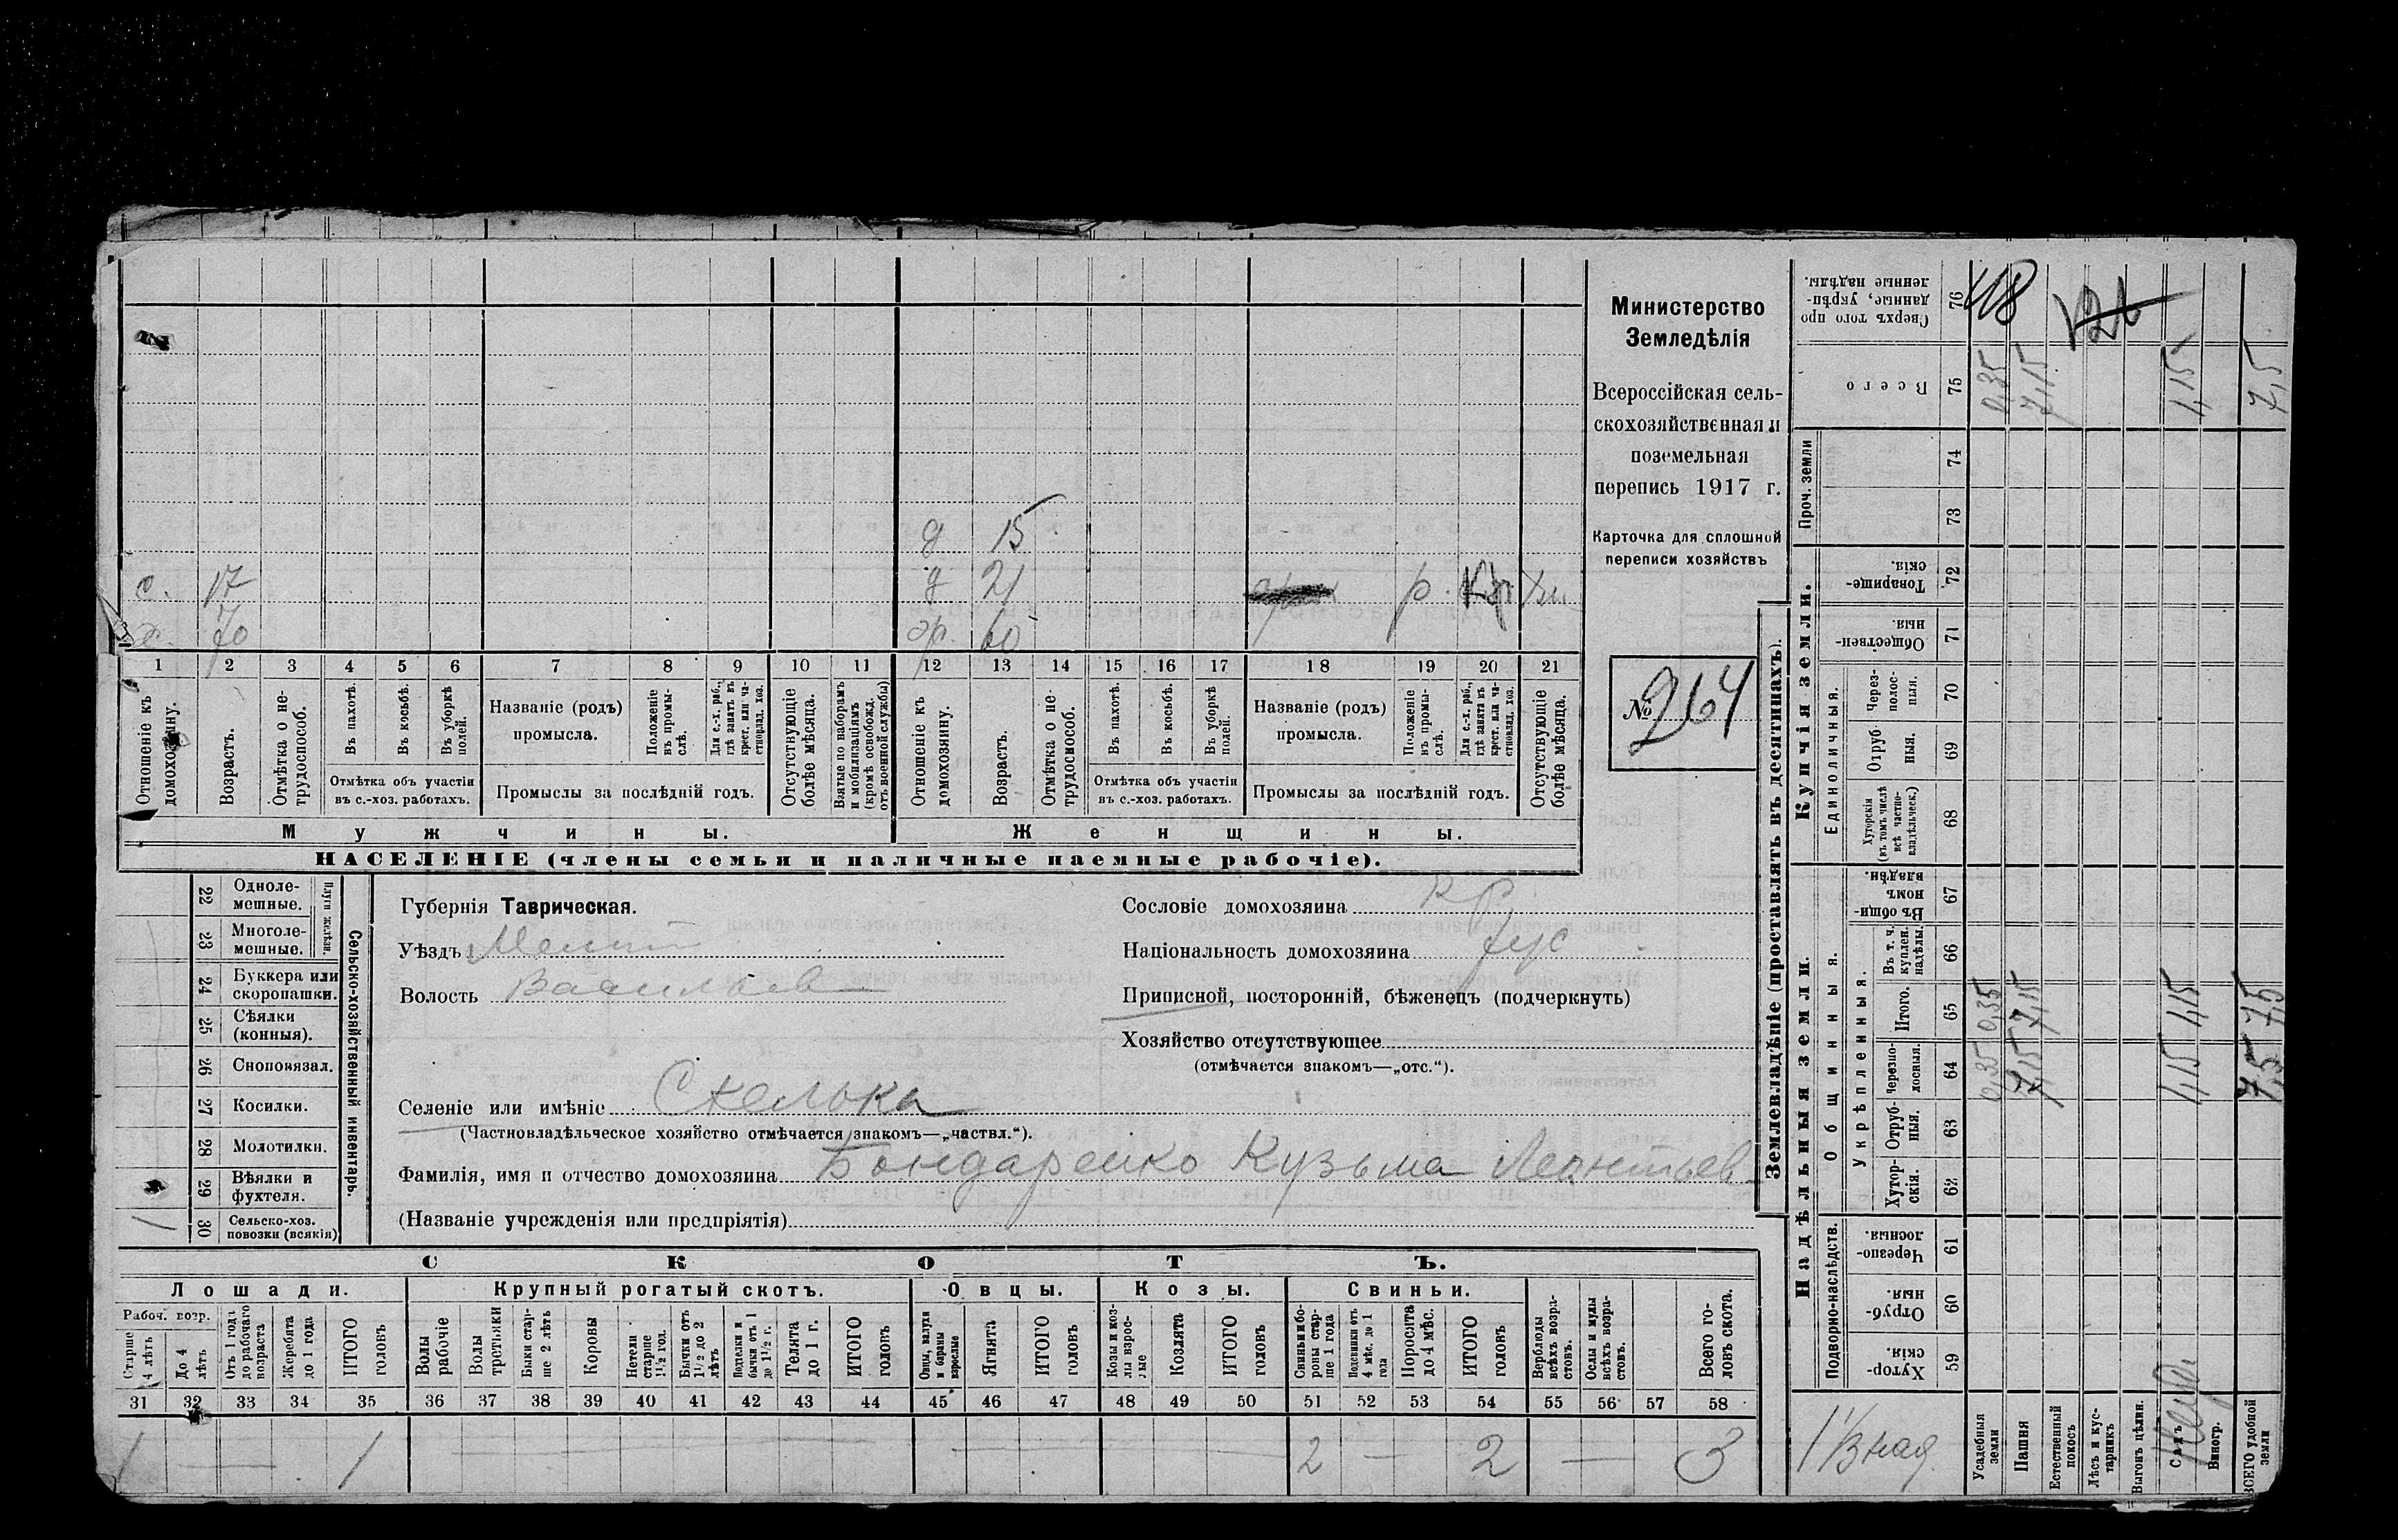 Министерство
Земледѣлія
Всероссійская сель-
скохозяйственная и
поземельная
перепись 1917 г.
Карточка для сплошной
переписи хозяйствъ
№ 264
д 15
с. 17 д 21 р.
х. 70 60
1 2 3 4 5 6 7 8 9 10 11 12 13 14 15 16 17 18 19 20 21
Отношеніе къ домохозяину.
Возрастъ.
Отмѣтка о не-трудоспособ.
Въ пахотѣ.
Въ косьбѣ.
Въ уборкѣ полей.
Отмѣтка объ участіи
въ с.-хоз. работахъ.
Названіе (родъ)
промысла.
Положеніе въ промы-слѣ.
Для с.-х. раб., гдѣ занятъ въ крест. или ча-стновлад. хоз.
Промыслы за послѣдній годъ.
Отсутствующіе болѣе мѣсяца.
Взятые по наборамъ и мобилизаціямъ (кромѣ освобожд. отъ военной службы)
Отношеніе къ домохозяину.
Возрастъ.
Отмѣтка о не-трудоспособ.
Въ пахотѣ.
Въ косьбѣ.
Въ уборкѣ полей.
Отмѣтка объ участіи
въ с.-хоз. работахъ.
Названіе (родъ)
промысла.
Положеніе въ промы-слѣ.
Для с.-х. раб., гдѣ занята въ крест. или ча-стновлад. хоз.
Промыслы за послѣдній годъ.
Отсутствующіе болѣе мѣсяца.
Мужчины. Женщины.
НАСЕЛЕНІЕ (члены семьи и наличные наемные рабочіе).
Сельско-хозяйственный инвентарь.
Плуги желѣзн.
22 Одноле-мешные.
23 Многоле-мешные.
24 Буккера или скоропашки.
25 Сѣялки (конныя).
26 Сноповязал.
27 Косилки.
28 Молотилки.
29 Вѣялки и фухтеля.
1 30 Сельско-хоз. повозки (всякія)
Губернія Таврическая.
Уѣздъ Мелит
Волость Васильев
Селеніе или имѣніе Скелька
(Частновладѣльческое хозяйство отмѣчается знакомъ—„частвл.“).
Фамилія, имя и отчество домохозяина Бондаренко Кузьма Леонтьев
(Названіе учрежденія или предпріятія)
Сословіе домохозяина кр
Національность домохозяина рус
Приписной, посторонній, бѣженецъ (подчеркнуть)
Хозяйство отсутствующее
(отмѣчается знакомъ—„отс.“).
СКОТЪ.
Лошади. Крупный рогатый скотъ. Овцы. Козы. Свиньи.
Рабоч. возр.
Старше 4 лѣтъ
До 4 лѣтъ
Отъ 1 года до рабочаго возраста
Жеребята до 1 года
ИТОГО головъ
Волы рабочіе
Волы третьяки
Быки стар-ше 2 лѣтъ
Коровы
Нетели старше 1½ год.
Бычки отъ 1½ до 2 лѣтъ
Подтелки и бычки отъ 1 до 1½ г.
Телята до 1 г.
ИТОГО головъ
Овцы, валухи и бараны взрослые
Ягнята
ИТОГО головъ
Козы и коз-лы взрос-лые
Козлята
ИТОГО головъ
Свиньи и бо-ровы стар-ше 1 года
Подсвинки отъ 4 мѣс. до 1 года
Поросята до 4 мѣс.
ИТОГО головъ
Верблюды всѣхъ возра-стовъ.
Ослы и мулы всѣхъ возра-стовъ.
Всего го-ловъ скота.
31 32 33 34 35 36 37 38 39 40 41 42 43 44 45 46 47 48 49 50 51 52 53 54 55 56 57 58
1 — 1 — — — 2 — 2 — 3
Землевладѣніе (проставлять въ десятинахъ).
Купчія земли.
Надѣльныя земли.
Проч. земли
Единоличныя.
Общинныя.
Укрѣпленныя.
Подворно-наслѣдств.
Сверхъ того про данные, укрѣп-ленные надѣлы. 76 118
Всего 75 0,35 7,15 7,5
74
73
Товарище-скія. 72
Обществен-ныя 71
Через-полос-ныя. 70
Отруб-ныя. 69
Хуторскія (въ томъ числѣ всѣ частно-владѣльческ.) 68
Въ общи-номъ владѣн. 67
Въ т. ч. куплен. надѣлы. 66
Итого. 65 0,35 7,15 7,5
Черезпо-лосныя. 64 0,35 7,15 7,5
Отруб-ныя. 63
Хутор-скія. 62
Черезпо-лосныя. 61
Отруб-ныя. 60
Хутор-скія. 59
Усадебныя земли
Пашня
Естественный покосъ
Лѣсъ и кус-тарникъ
Выгонъ цѣлин.
Садъ
Виногр.
ВСЕГО удобной земли